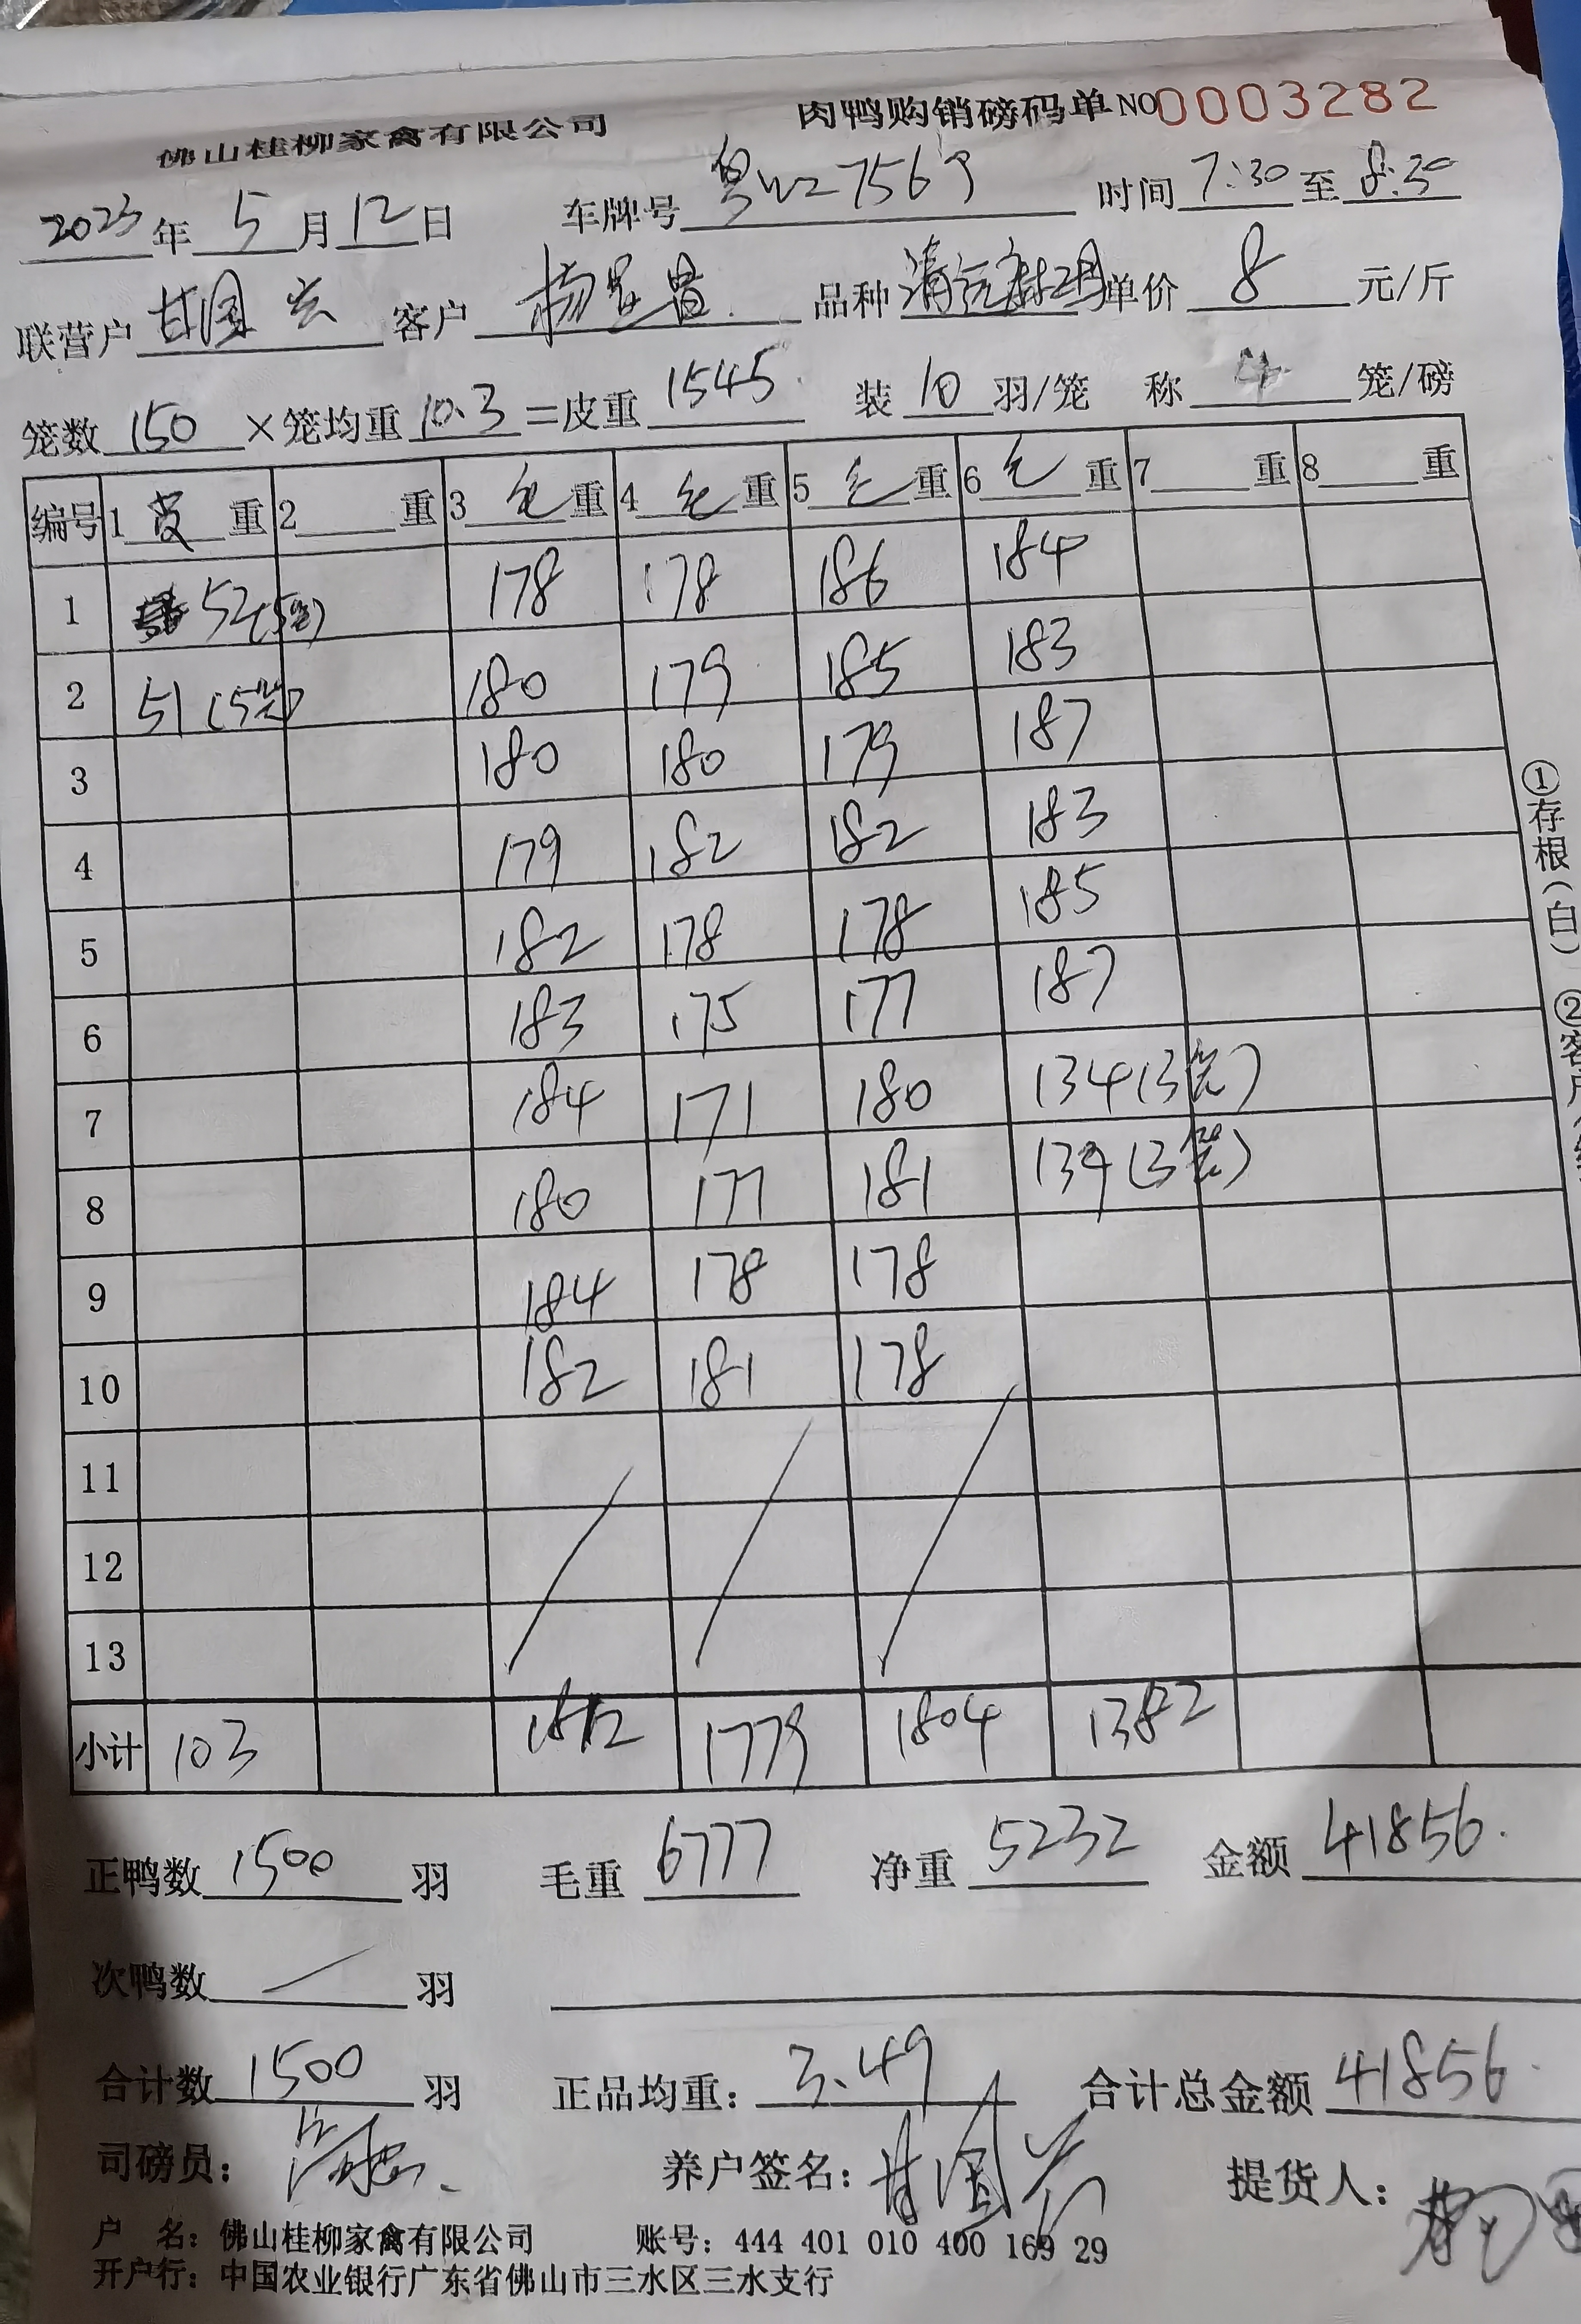 佛山桂柳家禽有限公司 肉鸭购销磅码单 NO 0003282
2023年 5 月 12 日 车牌号 粤 7567 时间 7:30 至 8:30
联营户 甘国兴 客户 杨 品种 清远麻鸡 单价 8 元/斤
笼数 150 ×笼均重 10.3 =皮重 1545 装 10 羽/笼 称 4 笼/磅
编号 1 皮 重 2 重 3 毛 重 4 毛 重 5 毛 重 6 毛 重 7 重 8 重
1 52(5笼) 178 178 186 184
2 51(5笼) 180 179 185 183
3 180 180 179 187
4 179 182 182 183
5 182 178 178 185
6 183 175 177 187
7 184 171 180 134(3笼)
8 180 177 181 139(3笼)
9 184 178 178
10 182 181 178
11
12
13
小计 103 1812 1779 1804 1382
正鸭数 1500 羽 毛重 6777 净重 5232 金额 41856.
次鸭数 / 羽
合计数 1500 羽 正品均重: 3.49 合计总金额 41856.
司磅员: 养户签名: 甘国兴 提货人:
户 名: 佛山桂柳家禽有限公司 账号: 444 401 010 400 169 29
开户行: 中国农业银行广东省佛山市三水区三水支行
①存根(白) ②客户